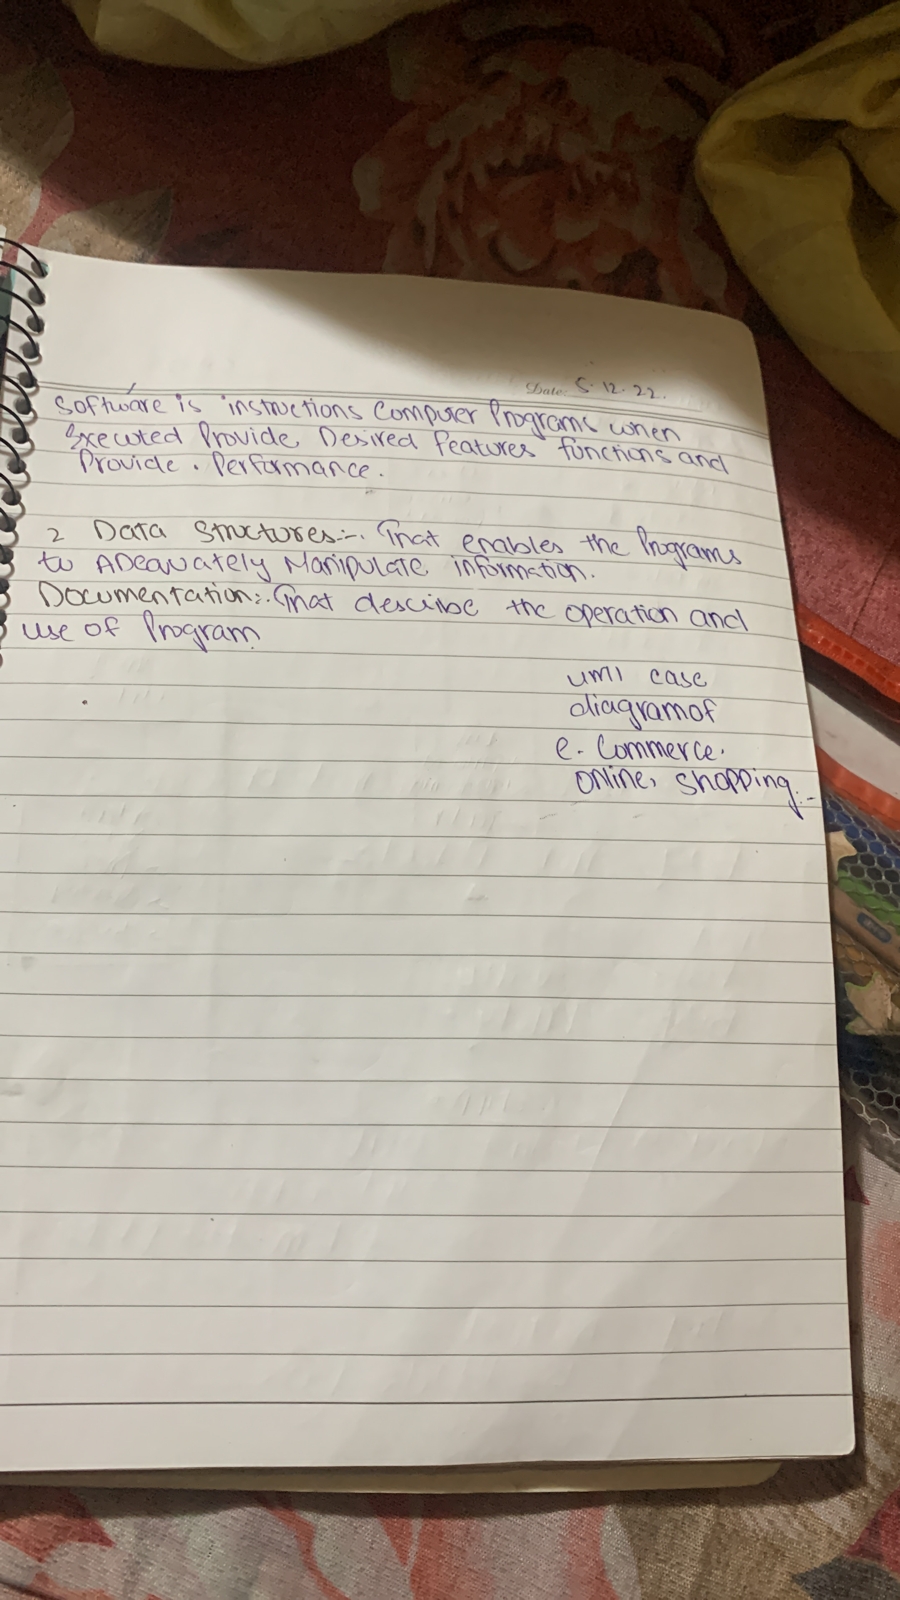 Date: 5.12.22.
Software is instructions Computer Programs when
Executed Provide Desired features functions and
Provide. Performance.
2 Data Structures:-. That enables the Programs
to Adequately Manipulate information.
Documentation:-. That describe the operation and
use of Program.
uml case
diagram of
e-Commerce.
Online, Shopping:-